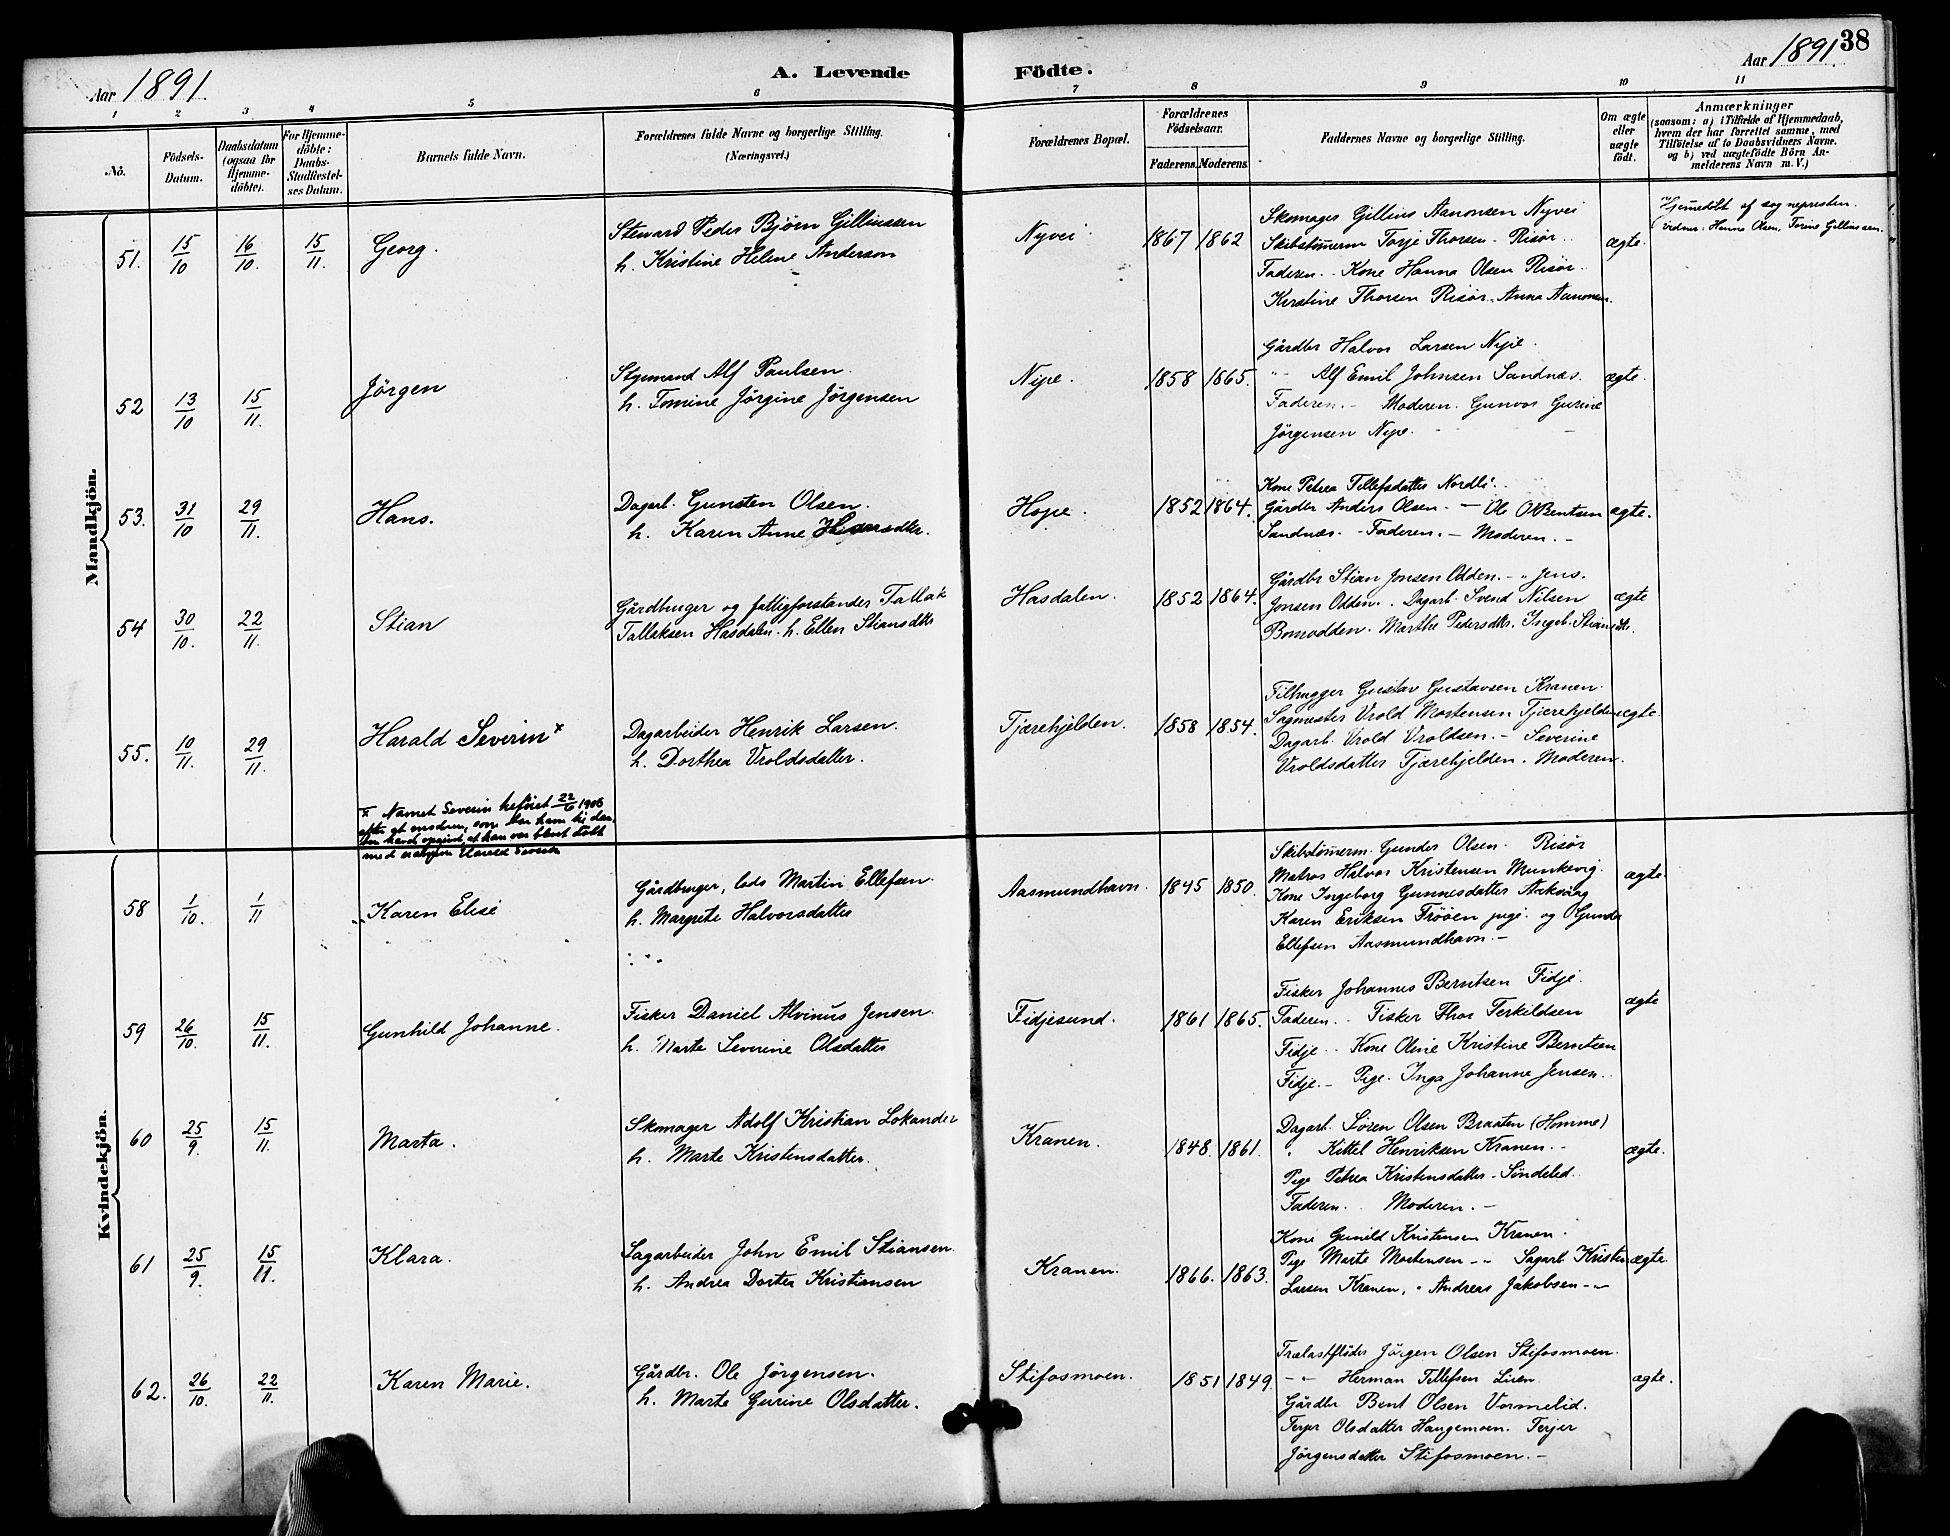 Aar 1891.
A. Levende Födte.
Aar 1891.
38
1 2 3 4 5 6 7 8 9 10 11
No.
Födsels-
Datum.
Daabsdatum
(ogsaa for
Hjemme-
döbte).
For Hjemme-
döbte:
Daabs-
Stadfæstel-
ses Datum.
Barnets fulde Navn.
Forældrenes fulde Navne og borgerlige Stilling.
(Næringsvei.)
Forældrenes Bopæl.
Forældrenes
Födselsaar.
Faderens. Moderens.
Faddernes Navne og borgerlige Stilling.
Om ægte
eller
uægte
födt.
Anmærkninger
(saasom: a) i Tilfælde af Hjemmedaab,
hvem der har forrettet samme, med
Tilføielse af to Daabsvidners Navne.
og b) ved uægtefödte Börn An-
melderens Navn m. V.)
Mandkjön.
51. 15/10 16/10. 15/11. Georg.
Steward Peder Björn Gilliussen
h. Kristine Helene Anderson
Nyvei 1867 1862
Skomager Gillius Aanonsen Nyvei
Skibstömerm Torje Thorsen - Risör.
Faderen. - Kone Hanna Olsen Risör.
Kirstine Thorsen Risör. Anna Aanonsen.
ægte.
Hjemedöbt af sognepresten.
Vidner: Hanna Olsen, Torine Gilliussen.
52 13/10 15/11. Jörgen
Styrmand Alf Paulsen.
h. Tomine Jörgine Jörgensen
Nipe. 1858 1865.
Gårdbr Halvor Larsen Nipe.
"- Alf Emil Johnsen Sandnæs.
Faderen. - Moderen. Gunvor Gurine
Jörgensen Nipe.
ægte.
53. 31/10 29/11. Hans.
Dagarb. Gunsten Olsen.
h. Karen Anne Hansdtr.
Hope. 1852 1864.
Kone Petrea Tellefsdatter Nordli.
Gårdbr Anders Olsen. - Ole O Bentsen
Sandnæs. - Faderen. - Moderen. -
ægte.
54 30/10. 22/11. Stian
Gårdbruger og fattigforstander Tallak
Tallaksen Hasdalen. h. Ellen Stiansdtr
Hasdalen. 1852 1864.
Gårdbr Stian Jonsen Odden. - " Jens.
Jonsen Odden. . Dagarb. Svend Nilsen
Bomodden. Marthe Pedersdtr. Ingeb. Stiansdtr.
ægte
55. 10/11. 29/11. Harald Severin x
Dagarbeider Henrik Larsen.
h. Dorthea Vroldsdatter.
Tjærehjelden. 1858 1854.
Tilhugger Gustav Gustavsen Kranen.
Sagmester Vrold Mortensen Tjærehjelden
Dagarb. Vrold Vroldsen. - Severine
Vroldsdatter Tjærehjelden. Moderen.
ægte.
x Navnet Severin tilföiet 22/6 1906
efter at moderen, som
har opgivet, at han var blevet döbt
med navnet Harald Severin
Kvindekjön.
58 1/10. 1/11 Karen Elise
Gårdbruger, lods Martin Ellefsen.
h. Margrete Halvorsdatter
Aasmundhavn. 1845 1850.
Skibstömerm. Gunder Olsen. Risör
Matros Halvor Kristensen Munkevig.
Kone Ingeborg Gunnesdatter Aakvåg
Karen Eriksen Frööen pige. og Gunder
Ellefsen Aasmundhavn. -
ægte
59 26/10. 15/11. Gunhild Johanne.
Fisker Daniel Alvinus Jensen.
h. Marte Severine Olsdatter
Fidjesund. 1861 1865.
Fisker Johannes Berntsen Fidje.
Faderen. - Fisker Thor Terkildsen
Fidje. - Kone Oline Kristine Berntsen
Fidje. - Pige. Inga Johanne Jensen.
ægte
60 25/9. 15/11. Marta.
Skomager Adolf Kristian Lokander
h. Marte Kristensdatter.
Kranen. 1848. 1861.
Dagarb. Sören Olsen Braaten (Homme)
" Kittel Henriksen Kranen. -
Pige Petrea Kristensdatter. Söndeled.
Faderen. . Moderen. -
ægte.
61 25/9. 15/11. Klara.
Sagarbeider John Emil Stiansen.
h. Andrea Dortea Kristiansen
Kranen. 1866. 1863.
Kone Gunild Kristensen Kranen.
Pige Marte Mortensen - " Sagarb. Kristen
Larsen Kranen. " Andreas Jakobsen - "
ægte.
62. 26/10. 22/11. Karen Marie.
Gårdbr. Ole Jörgensen.
h. Marte Gurine Olsdatter.
Stifosmoen. 1851 1849.
Trælastflöder Jörgen Olsen Stifosmoen.
- " - Herman Tellefsen Lien.
Gårdbr Bent Olsen Vormelid.
Terjer Olsdatter Haugemoen. Terjer
Jörgensdatter Stifosmoen. -
ægte.